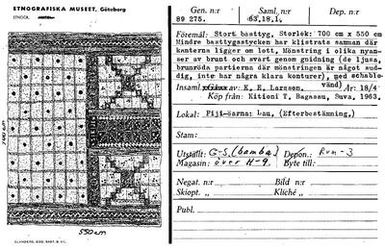 ETNOGRAFISKA MUSEET, Göteborg
700 cm
550 cm
Gen. n:r
Saml. n:r
Dep. n:r
89 275.
63.18.1.
Föremål: Stort basttyg. Storlek: 700 cm x 550 cm
Mindre basttygsstycken har klistrats samman där
kanterna ligger om lott, Mönstring i olika nyan-
ser av brunt och svart genom gnidning (de ljusa,
brunröda partierna där mönstringen är något sud-
dig, inte har några klara konturer), med schablo
Insaml. av K. E. Larsson. År: 18/4
Köp från: Kitioni T, Bagasau, Suva, 1963.
Lokal: Fiji-öarna: Lau, (Efterbestämning,)
Stam:
Utställt: G-S. (bamba) Depon.: Rum-3
Magasin: över H-9. Byte till:
Negat. n:r
Bild n:r
Skiopt. n:r
Kliché
Publ.